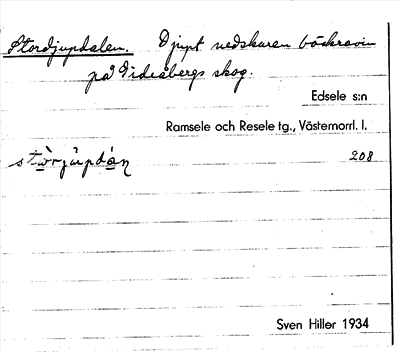 Stordjupdalen. Djupt nedskuren bäckravin
på Gideåbergs skog.
Edsele s:n
Ramsele och Resele tg., Västernorrl. l.
208
Sven Hiller 1934